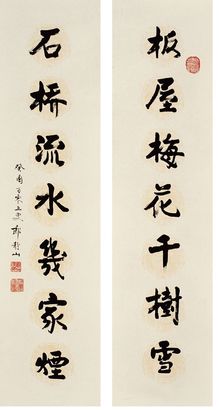 板屋梅花千樹雪
石橋流水幾家煙
癸酉
山